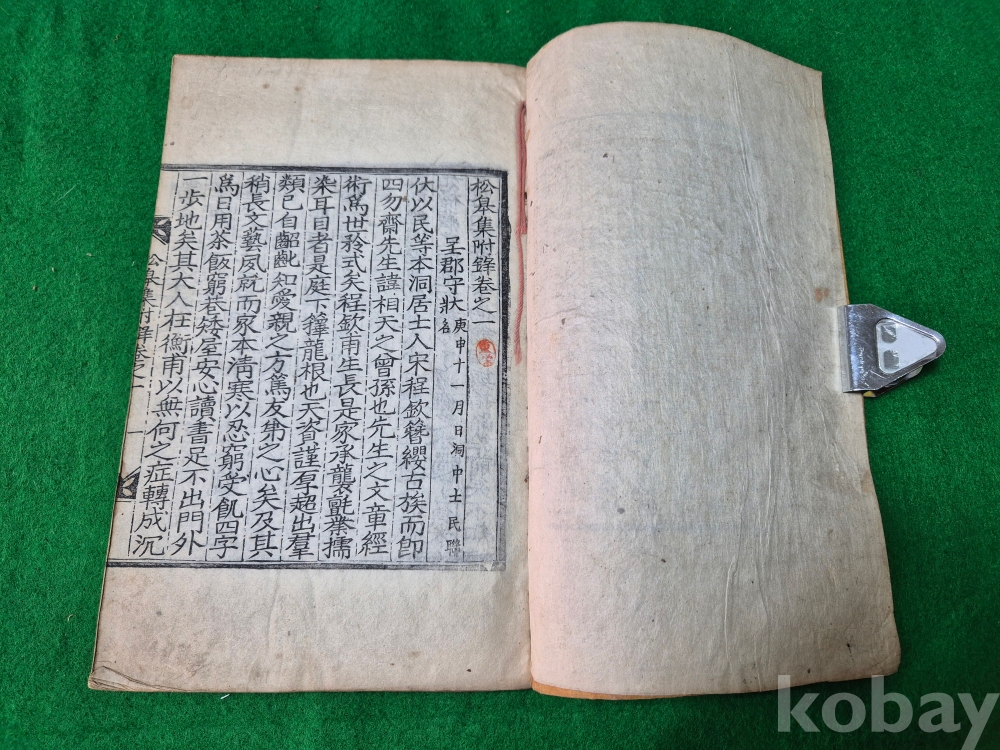 松皐集附錄卷之一
呈郡守狀 庚申十一月日洞中士民聯名
伏以民等本洞居士人宋程欽簪纓古族而卽
四勿齋先生諱相天之曾孫也先生之文章經
術爲世矜式矣程欽甫生長是家承襲氈業擩
染耳目者是庭下籜龍根也天資謹厚超出羣
類已自齠齔知愛親之方篤友弟之心矣及其
稍長文藝夙就而家本淸寒以忍窮受飢四字
爲日用茶飯窮巷矮屋安心讀書足不出門外
一步地矣其大人柱衡甫以無何之症轉成沉
松皐集附錄卷之一 一
kobay